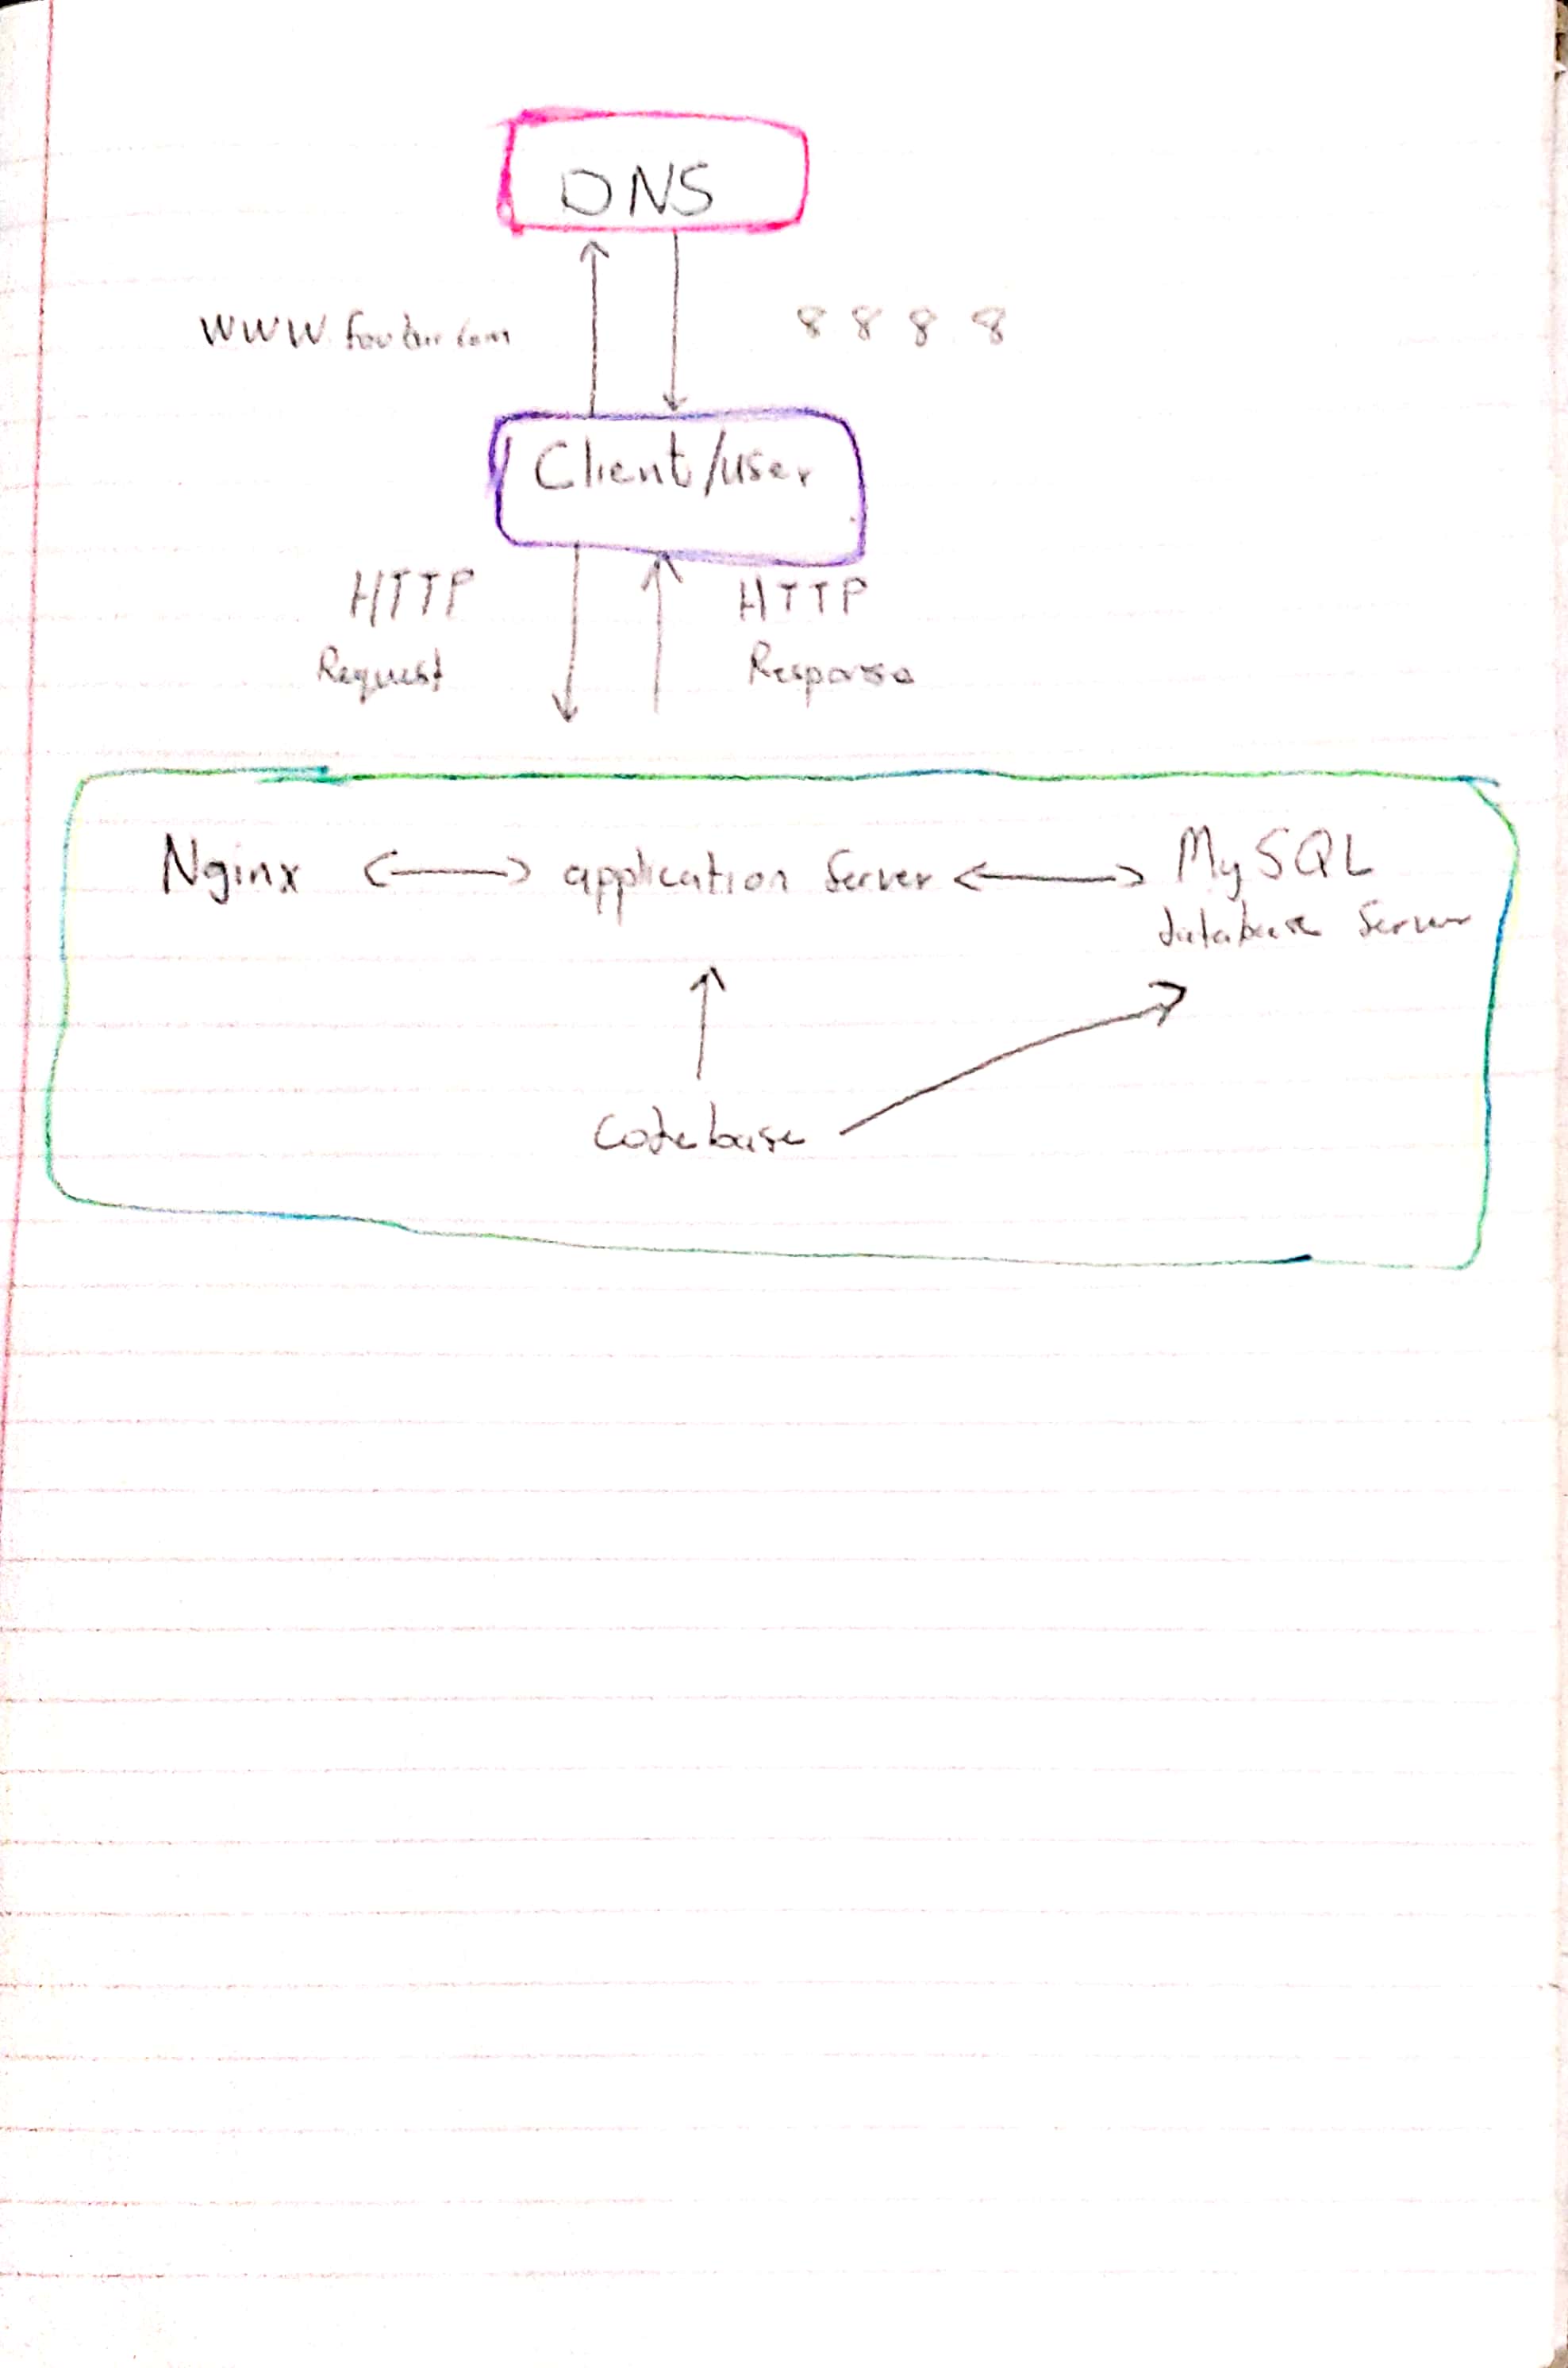 DNS
www.foobar.com
8 8 8 8
Client/user
HTTP
Request
HTTP
Response
Nginx
application Server
MySQL
database Server
Codebase